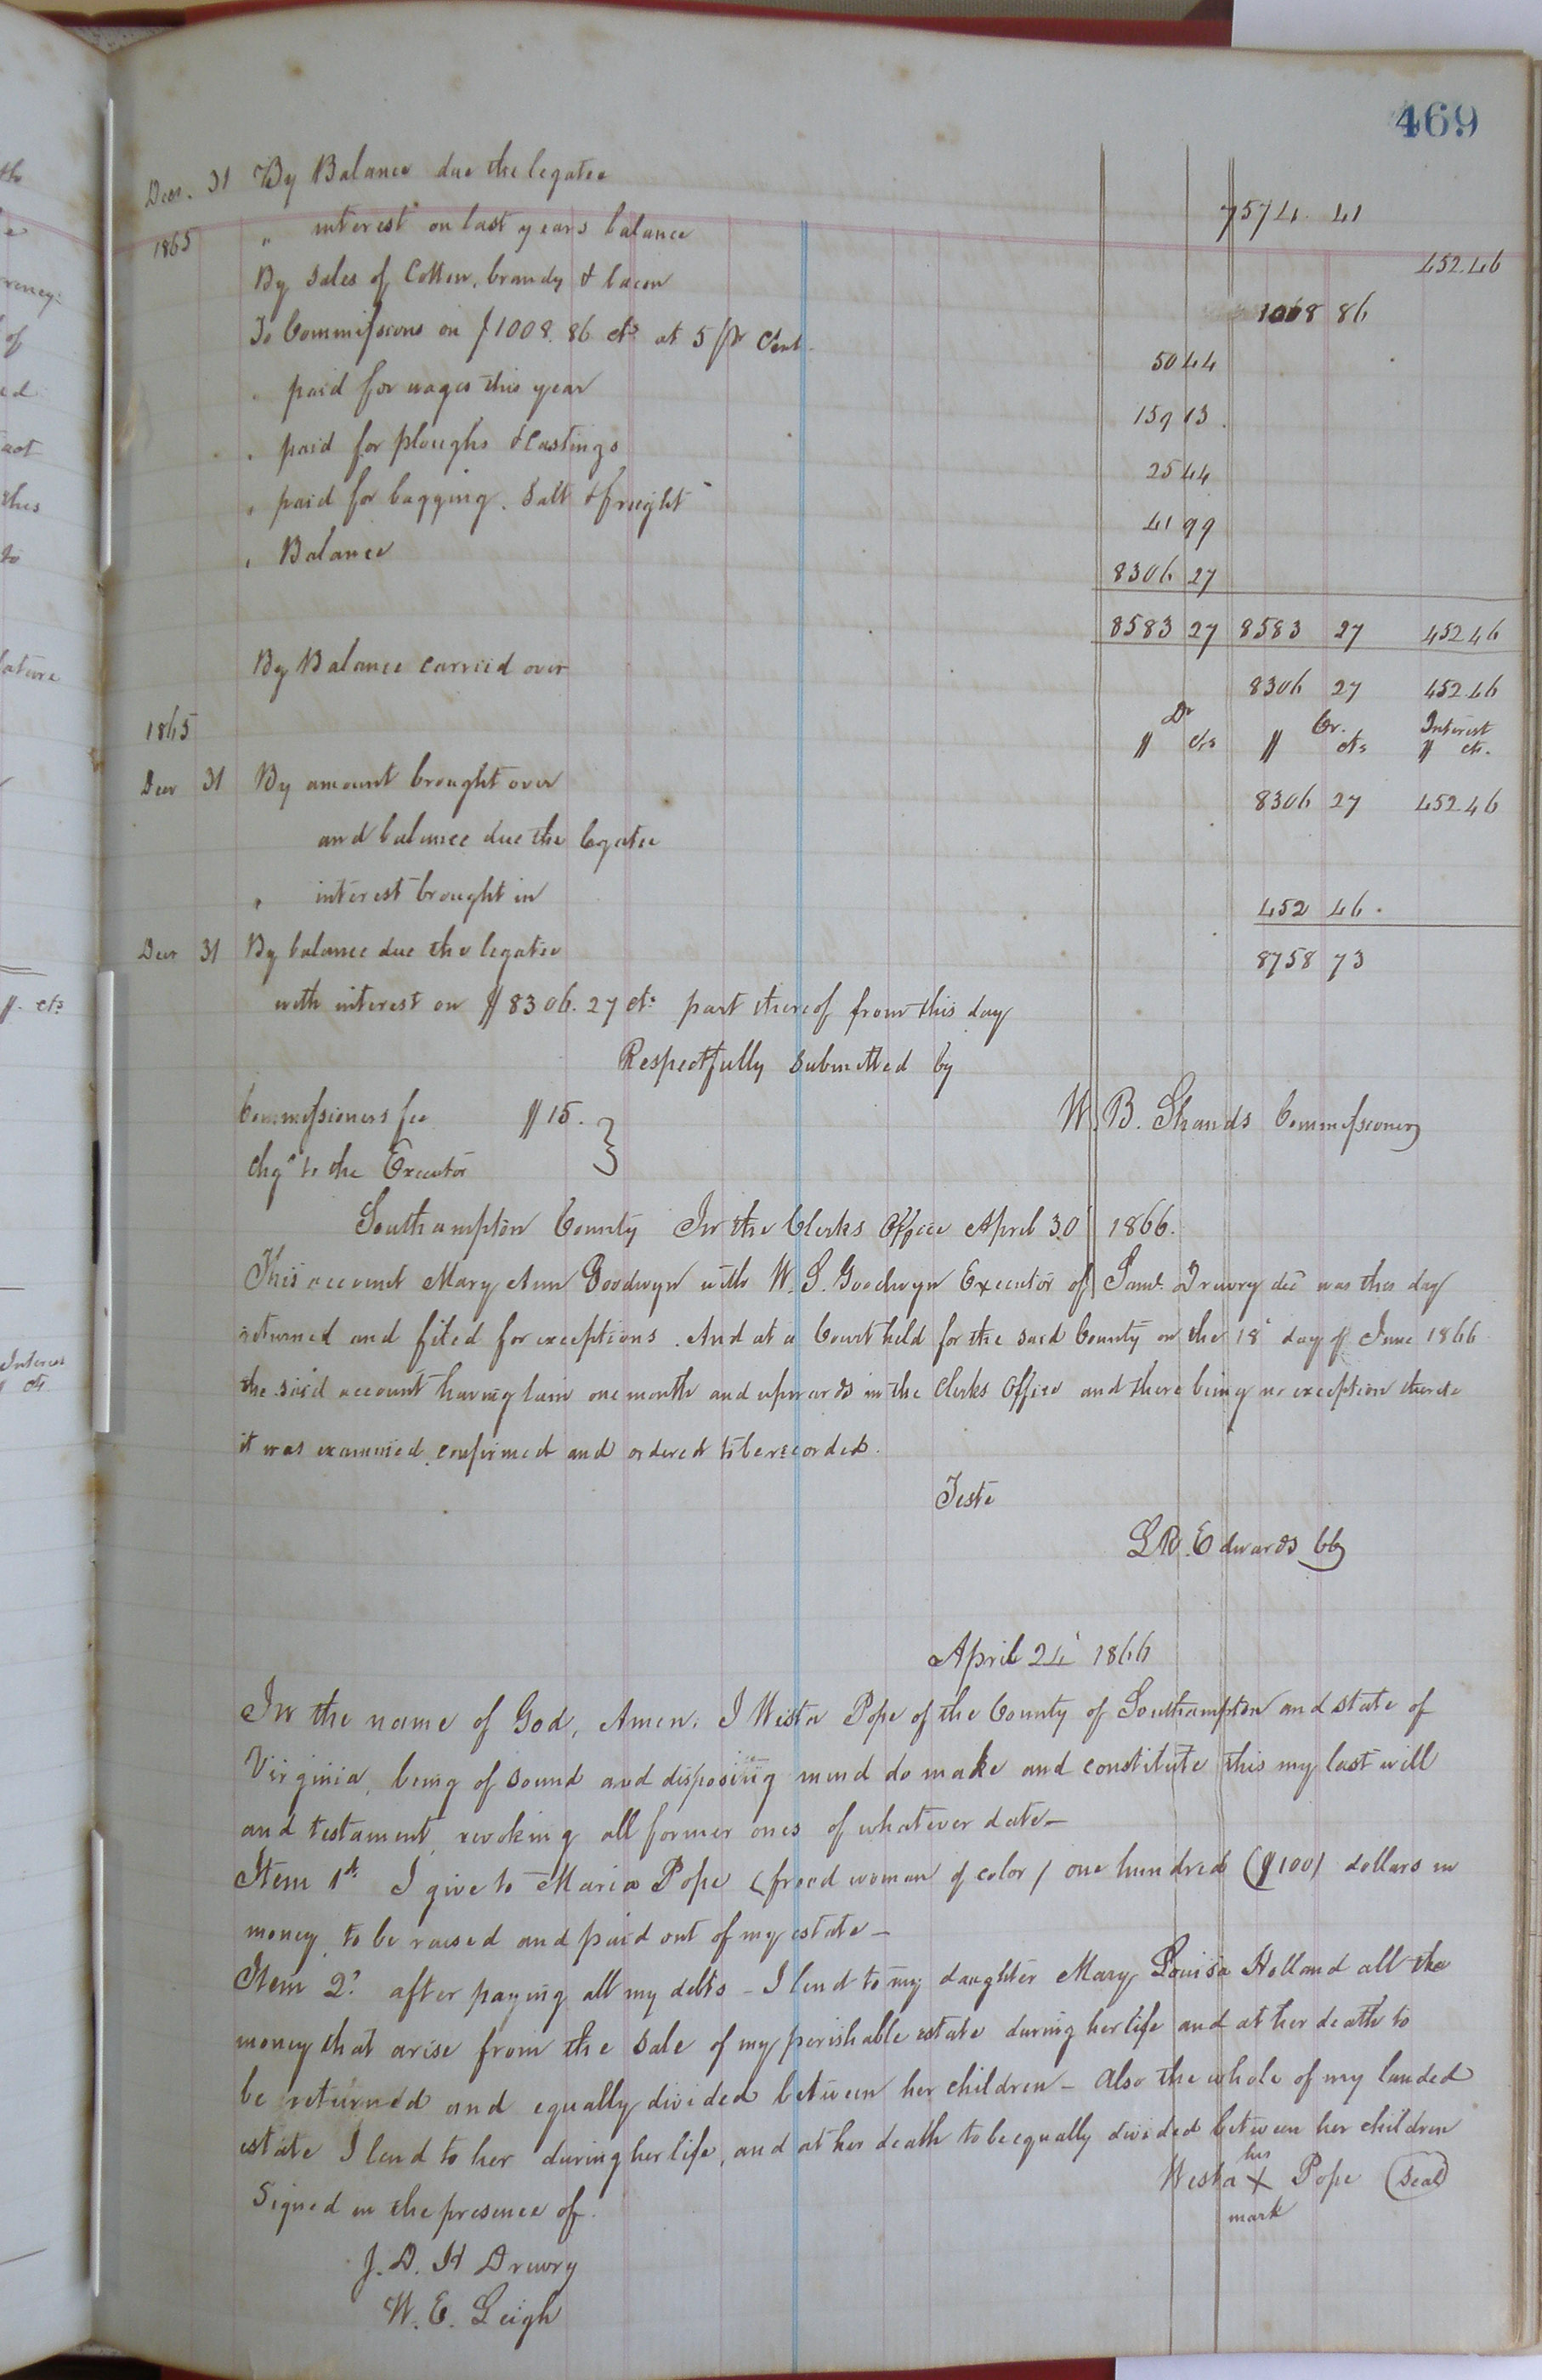 469
Decr. 31 By Balance due the legatee 7574. 41
1865 " interest on last years balance 452.46
By Sales of Cotton, brandy & bacon 1008 86
To Commissions on $1008.86 cts at 5 pr Cent. 50 44
" paid for wages this year 159 13
" paid for ploughs & Castings 25 44
" paid for bagging. Salt & freight 41 99
" Balance 8306 27
8583 27 8583 27 452 46
By Balance carried over 8306 27 452.46
1865 Dr Cr. Interest
$ cts $ cts $ cts.
Decr 31 By amount brought over 8306 27 452 46
and balance due the legatee
" interest brought in 452 46.
Decr 31 By balance due the legatee 8758 73
with interest on $8306.27 cts part thereof from this day
Respectfully submitted by
Commissioners fee $15. } W. B. Shands Commissioner
chgd to the Executor
Southampton County In the Clerks Office April 30 1866.
This account Mary Ann Goodwyn with W. S. Goodwyn Executor of Saml. Drewry decd was this day
returned and filed for exceptions. And at a Court held for the said County on the 18' day of June 1866
the said account having lain one month and upwards in the Clerks Office and there being no exception thereto
it was examined, confirmed and ordered to be recorded.
Teste
L R. Edwards CC
April 24' 1866
In the name of God, Amen. I Westa Pope of the County of Southampton and state of
Virginia, being of sound and disposing mind do make and constitute this my last will
and testament, revoking all former ones of whatever date—
Item 1st I give to Maria Pope (freed woman of color) one hundred ($100) dollars in
money, to be raised and paid out of my estate—
Item 2d after paying all my debts – I lend to my daughter Mary Louisa Holland all the
money that arise from the sale of my perishable estate during her life and at her death to
be returned and equally divided between her children – also the whole of my landed
estate I lend to her during her life, and at her death to be equally divided between her children
his
Westa X Pope (seal)
mark
Signed in the presence of.
J. D. H Drewry
W. E. Leigh